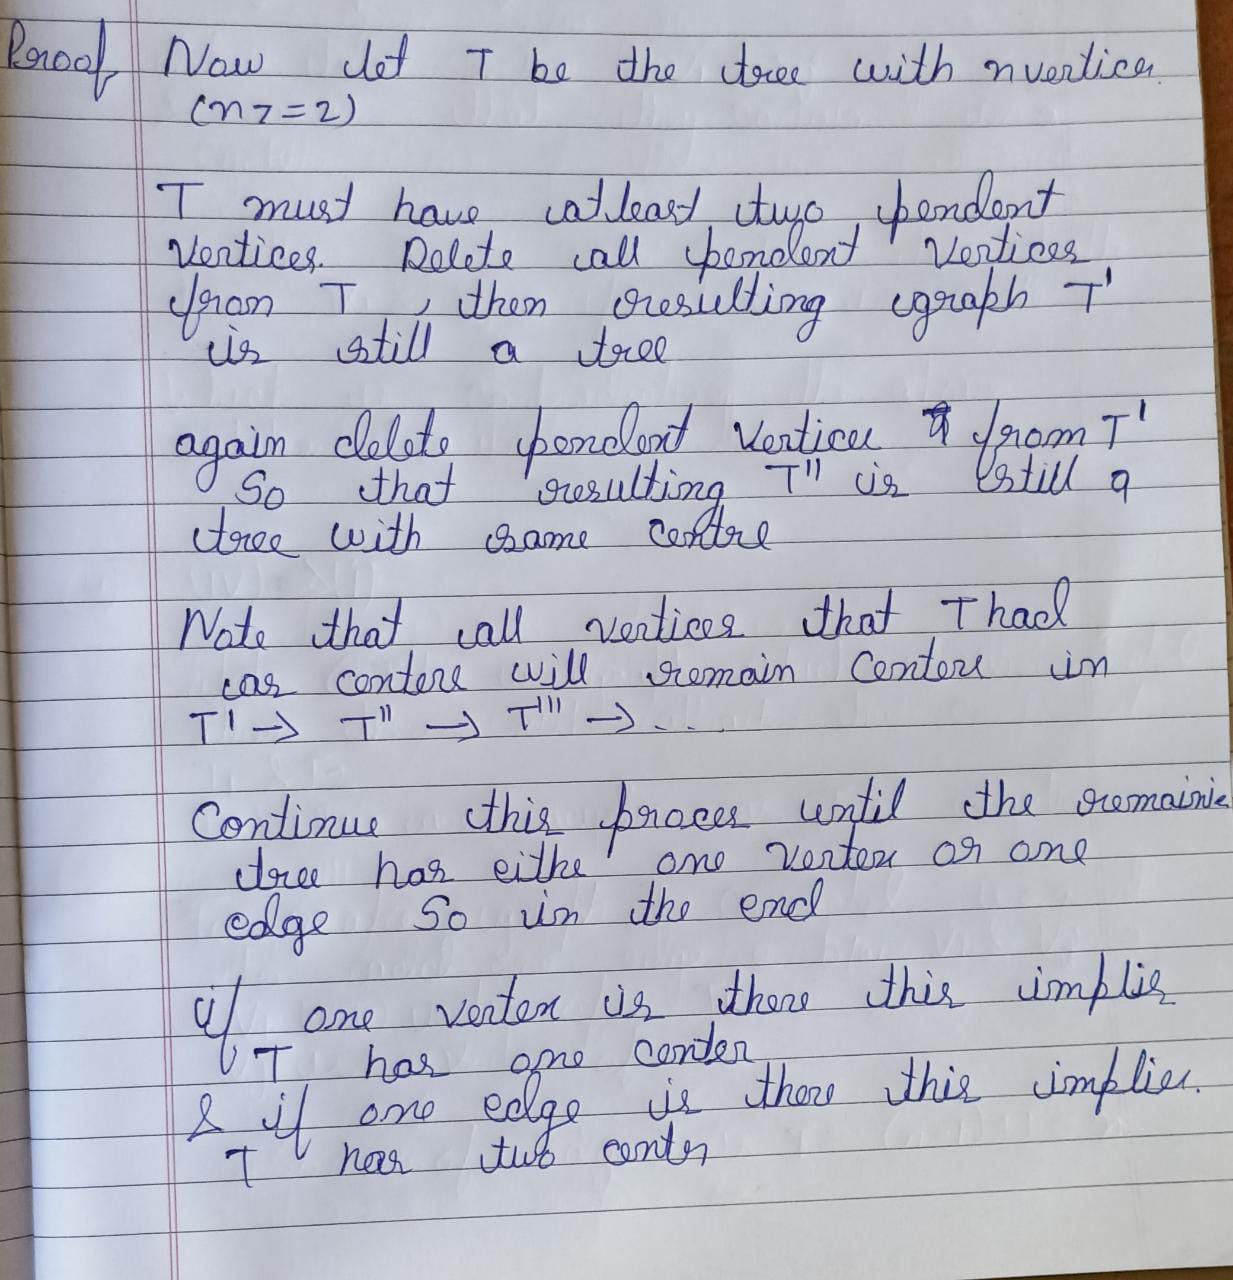 Proof Now let T be the tree with n vertices.
(n >= 2)
T must have atleast two pendent
vertices. Delete all pendent vertices
from T, then resulting graph T'
is still a tree
again delete pendent vertices from T'
So that resulting T'' is still a
tree with same centre
Note that all vertices that T had
as centere will remain centere in
T' → T'' → T''' → ...
Continue this proces until the remainie
tree has eithe one vertex or one
edge So in the end
if one vertex is there this implis
T has one center
& if one edge is there this implies.
T has two center